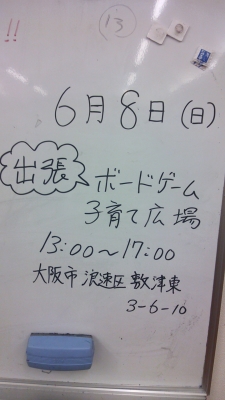 !!
13
6月8日(日)
出張
ボードゲーム
子育て広場
13:00〜17:00
大阪市浪速区敷津東
3-6-10